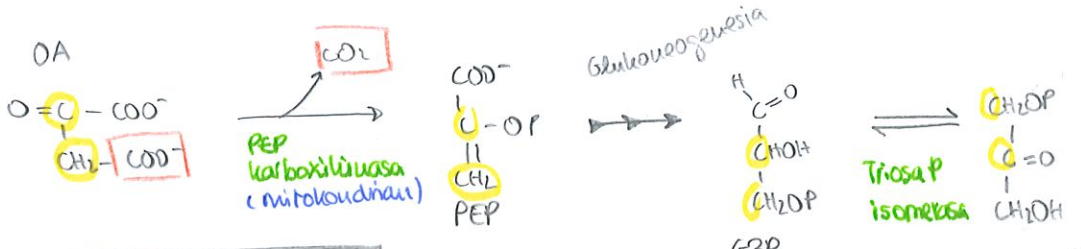 OA
O=C-COO⁻
CH₂-COO⁻
CO₂
PEP
karboxikinasa
(mitokondrian)
COO⁻
C-OP
CH₂
PEP
Glukoneogenesia
H
C=O
CHOH
CH₂OP
G3P
Triosa P
isomerasa
CH₂OP
C=O
CH₂OH